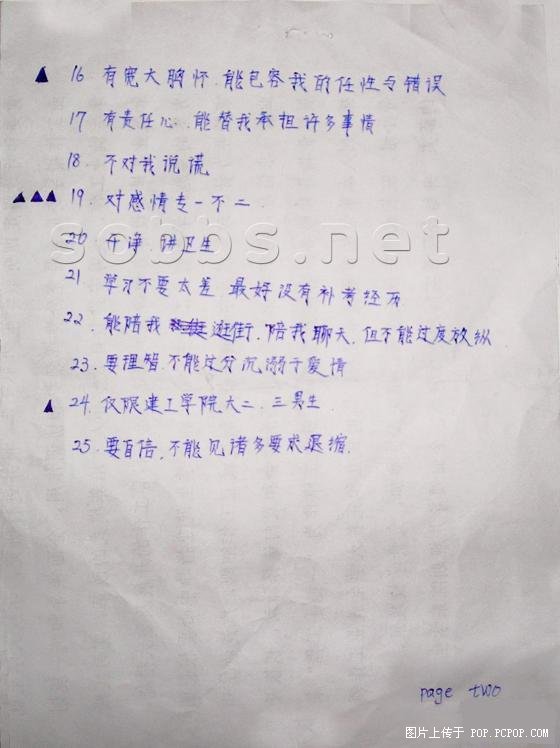 ▲ 16 有宽大胸怀.能包容我的任性与错误
17 有责任心.能替我承担许多事情
18. 不对我说谎
▲▲▲ 19. 对感情专一不二.
sobbs.net
20 干净.讲卫生
21 学习不要太差 最好没有补考经历
22. 能陪我逛街.陪我聊天.但不能过度放纵
23. 要理智.不能过分沉溺于爱情
▲ 24. 仅限建工学院大二.三男生
25. 要自信.不能见诸多要求退缩.
page two
图片上传于 POP.PCPOP.COM